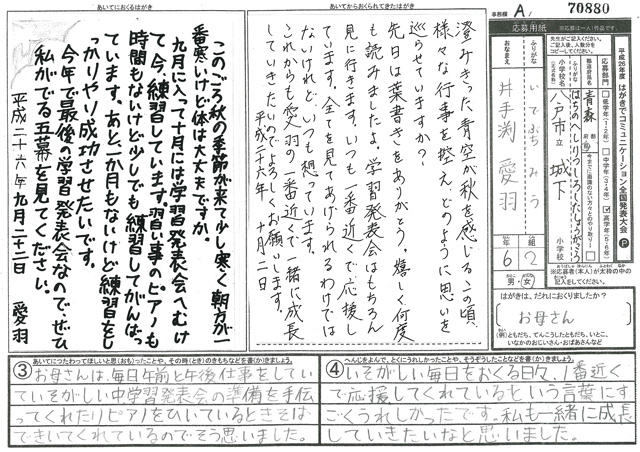 事務欄 A 70880
応募用紙
※応募は一人1作品です。
平成26年度 はがきでコミュニケーション全国発表大会 P
応募部門
低学年(1・2年)
中学年(3・4年)
高学年(5・6年)
都道府県名
青森
都府県
ふりがな
はちのへしりつしろしたしょうがっこう
小学校名
八戸市立 城下
小学校
ふりがな
いでぶち みう
おなまえ
井手渕 愛羽
年 組
6 2
男・女
※応募者(本人)が太枠の中の記入をしてください。
はがきは、だれにおくりましたか?
お母さん
(例)ともだち、てんこうしたともだち、いとこ、
いなかのおじいさん・おばあさんなど
あいてからおくられてきたはがき
澄みきった青空が秋を感じるこの頃、
様々な行事を控え、どのように思いを
巡らせいますか?
先日は葉書きをありがとう。嬉しく何度
も読みましたよ。学習発表会はもちろん
見に行きます。いつも一番近くで応援し
ています。全てを見てあげられるわけでは
ないけれど、いつも想っています。
これからも愛羽の一番近くで一緒に成長
していきたいのでよろしくお願いします。
平成二十六年 十月二日
あいてにおくるはがき
このごろ秋の季節が来て少し寒く朝方が一
番寒いけど体は大丈夫ですか。
九月に入って十月には学習発表会へむけ
て今、練習しています。習い事のピアノも
時間もないけど少しでも練習してがんばっ
ています。あと一か月もないけど練習をし
っかりやり成功させたいです。
今年で最後の学習発表会なのでぜひ
私がでる五幕を見てください。
平成二十六年九月二十二日 愛羽
③ あいてにつたわってほしいと思(おも)ったことや、その時(とき)のきもちなどを書(か)きましょう。
お母さんは、毎日午前と午後仕事をしてい
ていそがしい中学習発表会の準備を手伝
ってくれたりピアノをひいているときそば
できいてくれているのでそう思いました。
④ へんじをよんで、とくにうれしかったことや、そうぞうしたことなどを書(か)きましょう。
いそがしい毎日をおくる日々、1番近く
で応援してくれているという言葉にす
ごくうれしかったです。私も一緒に成長
していきたいなと思いました。